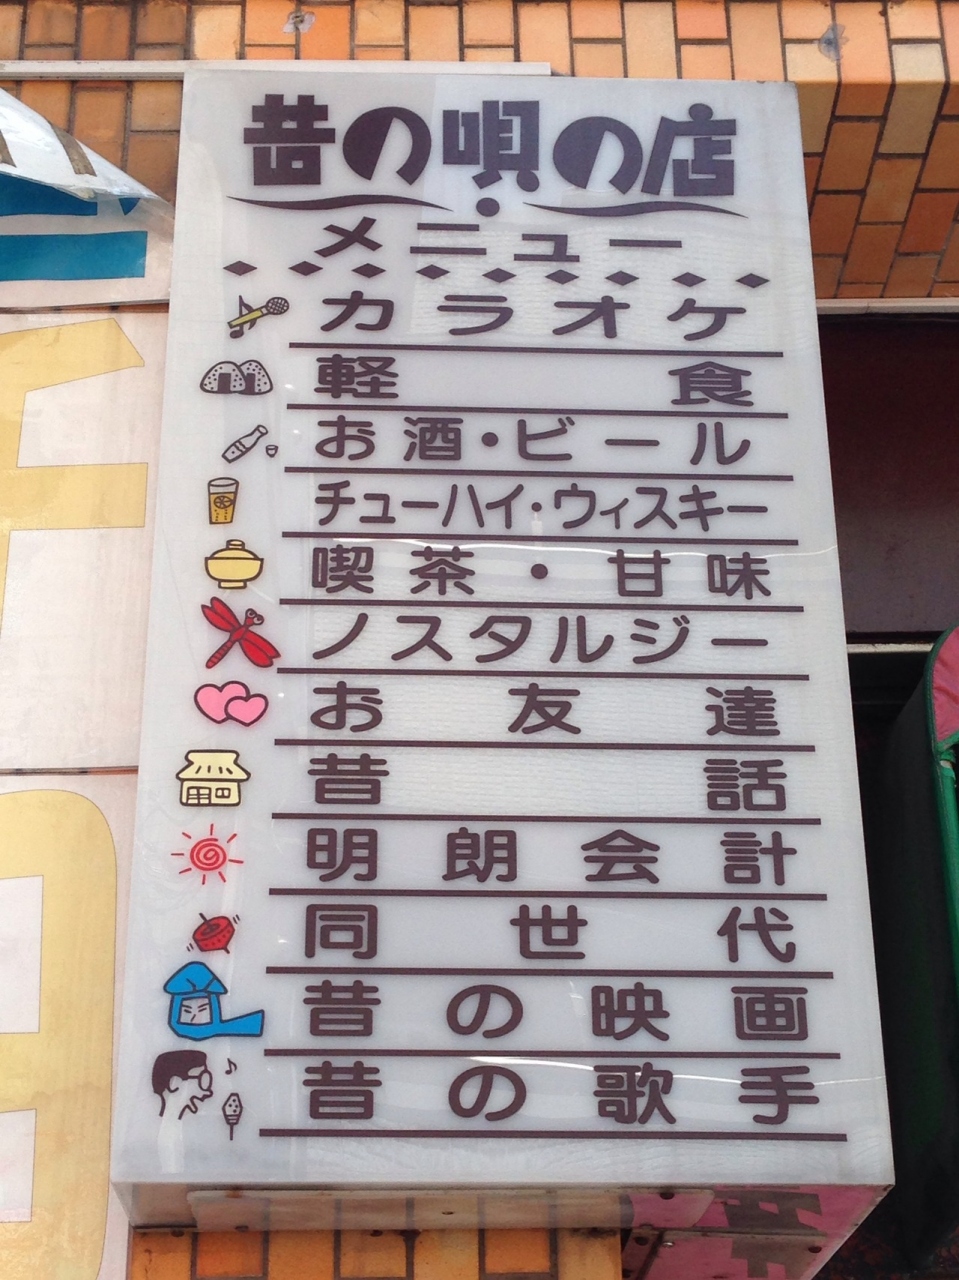 昔の唄の店
メニュー
カラオケ
軽食
お酒・ビール
チューハイ・ウィスキー
喫茶・甘味
ノスタルジー
お友達
昔話
明朗会計
同世代
昔の映画
昔の歌手